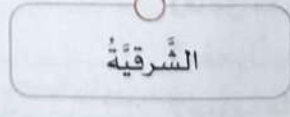 الشَّرقيَّةُ